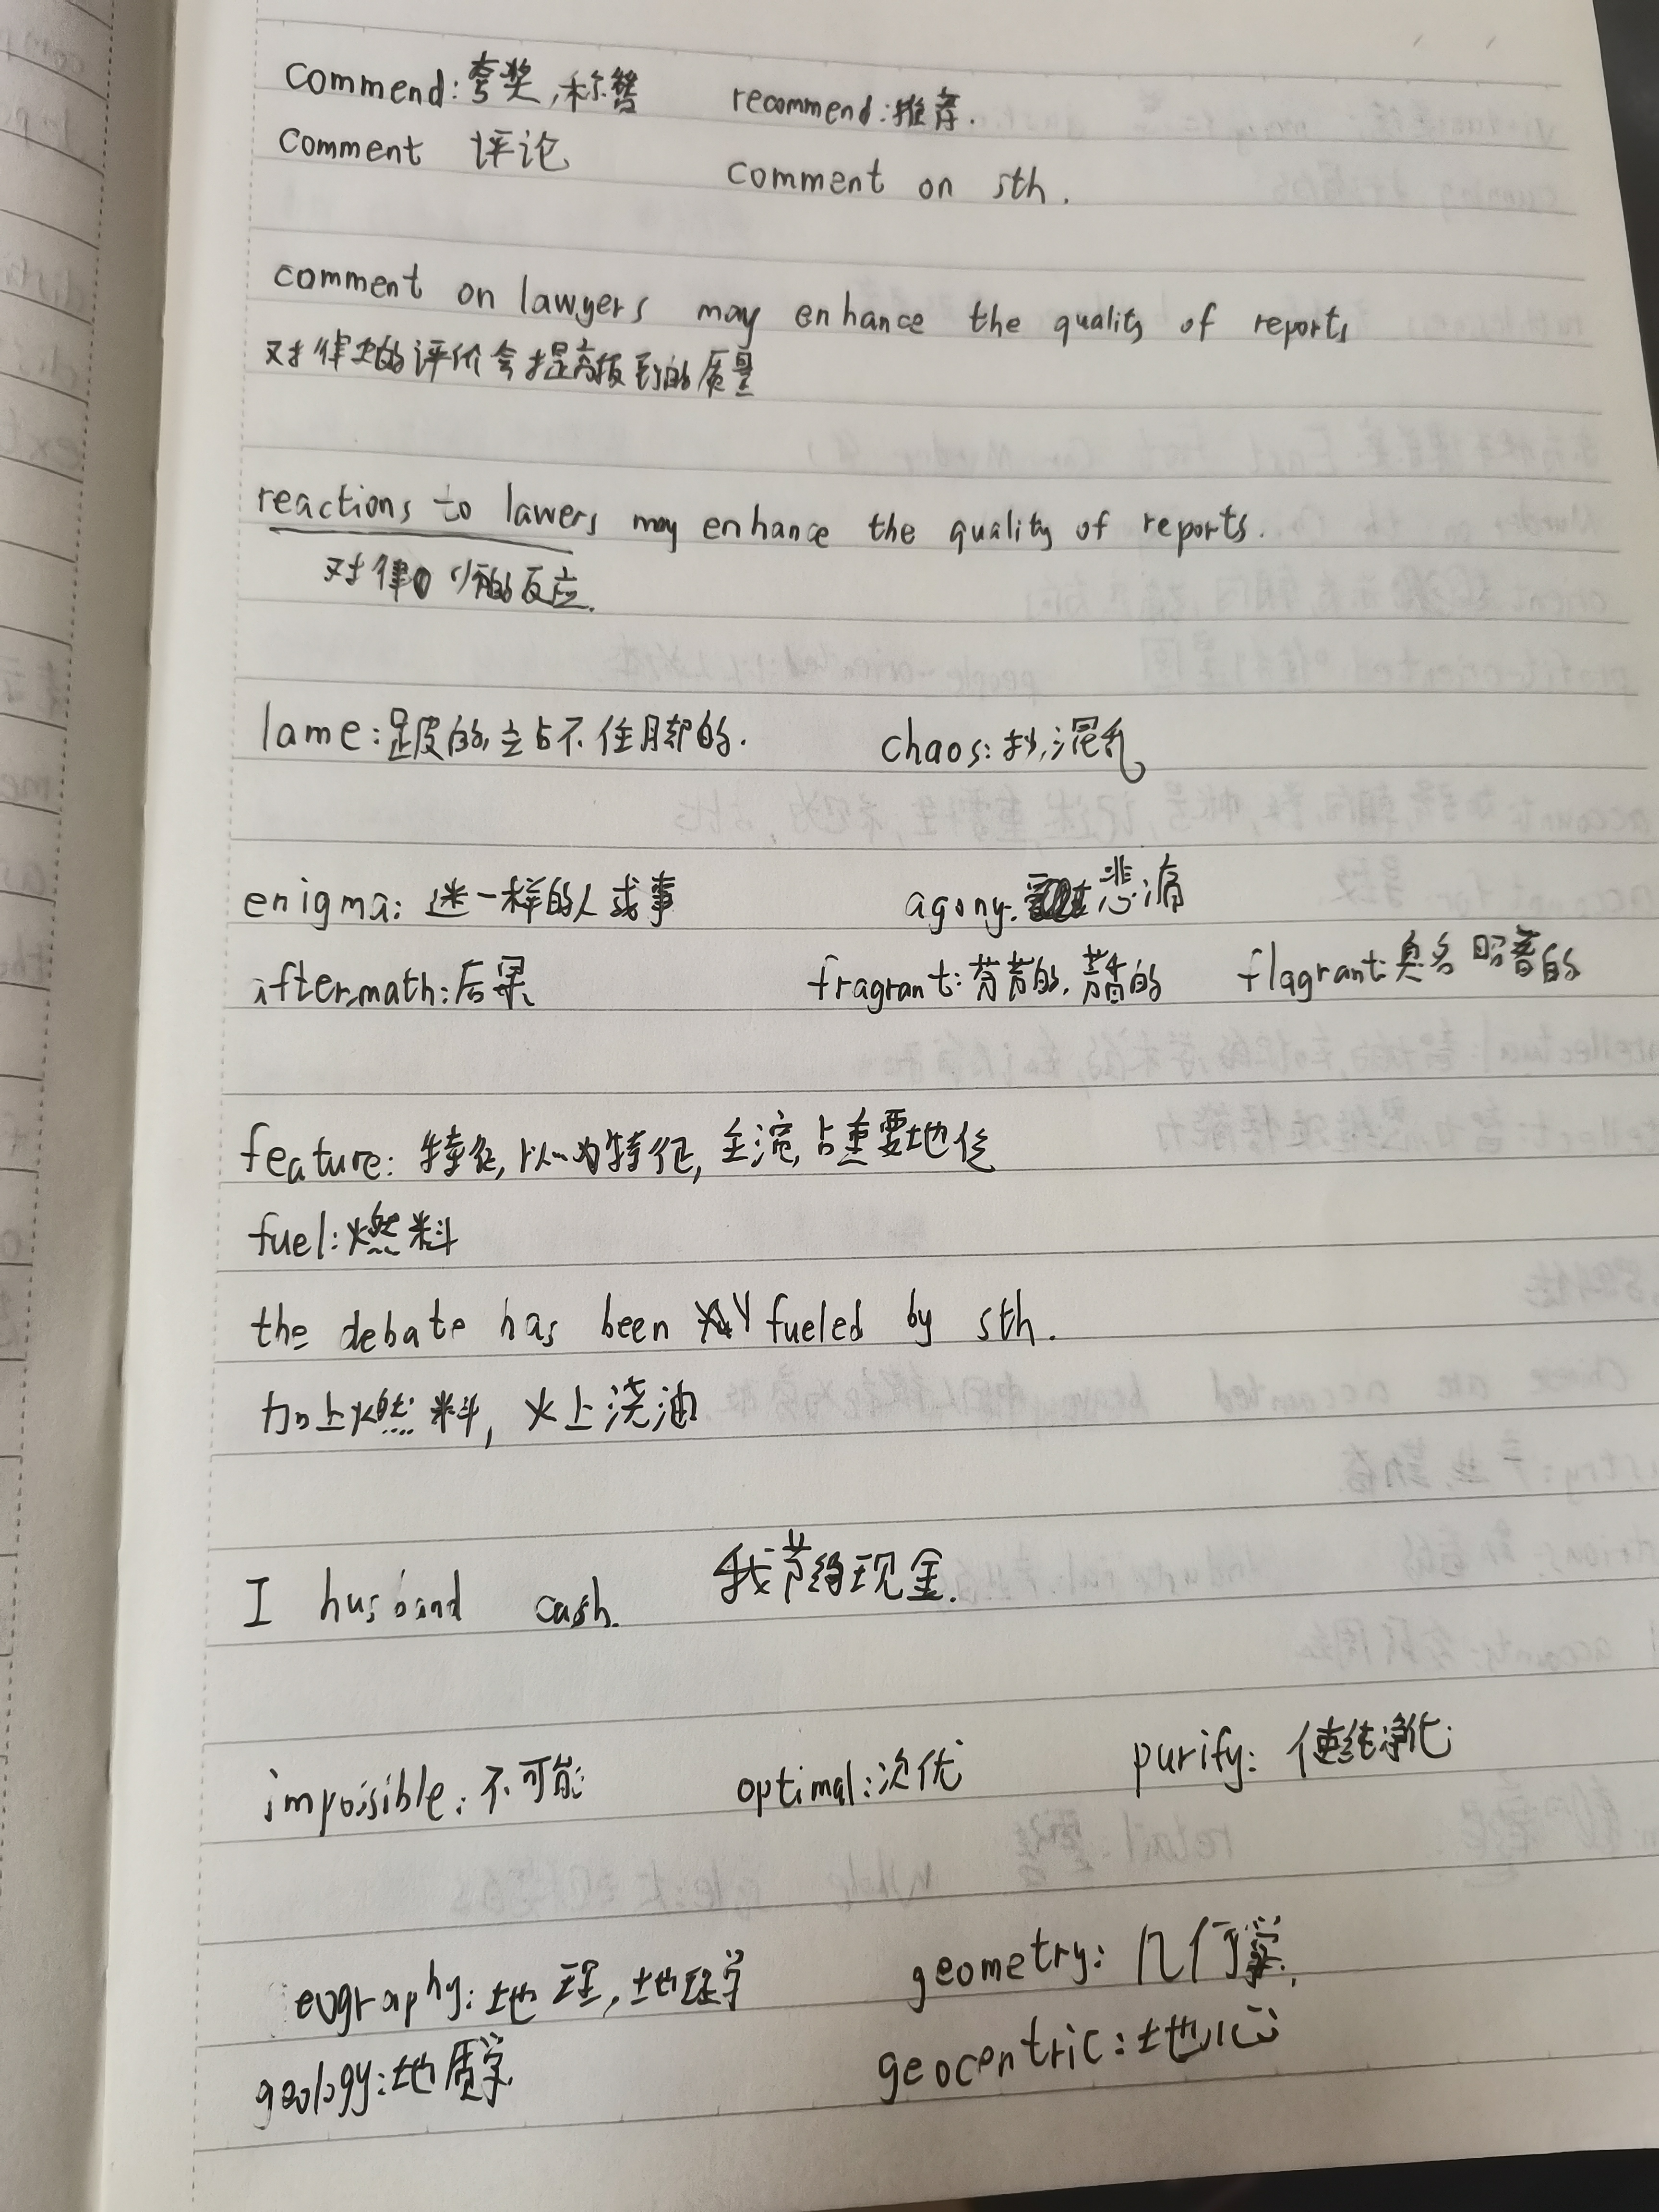 commend:夸奖,称赞 recommend:推荐.
comment 评论 comment on sth.
comment on lawyers may enhance the quality of reports
对律师的评价会提高报到的质量
reactions to lawers may enhance the quality of reports.
对律师的反应.
lame:跛的,站不住脚的. chaos: 混乱
enigma: 迷一样的人或事 agony: 悲痛
aftermath:后果 fragrant:芳香的. flagrant:臭名昭著的
feature: 特征,以为特征,主演,占重要地位
fuel:燃料
the debate has been fueled by sth.
加上燃料, 火上浇油
I husband cash. 我节约现金.
impossible: 不可能 optimal:次优 purify: 使纯净化
eography:地理,地理学 geometry: 几何学.
geology:地质学 geocentric:地心